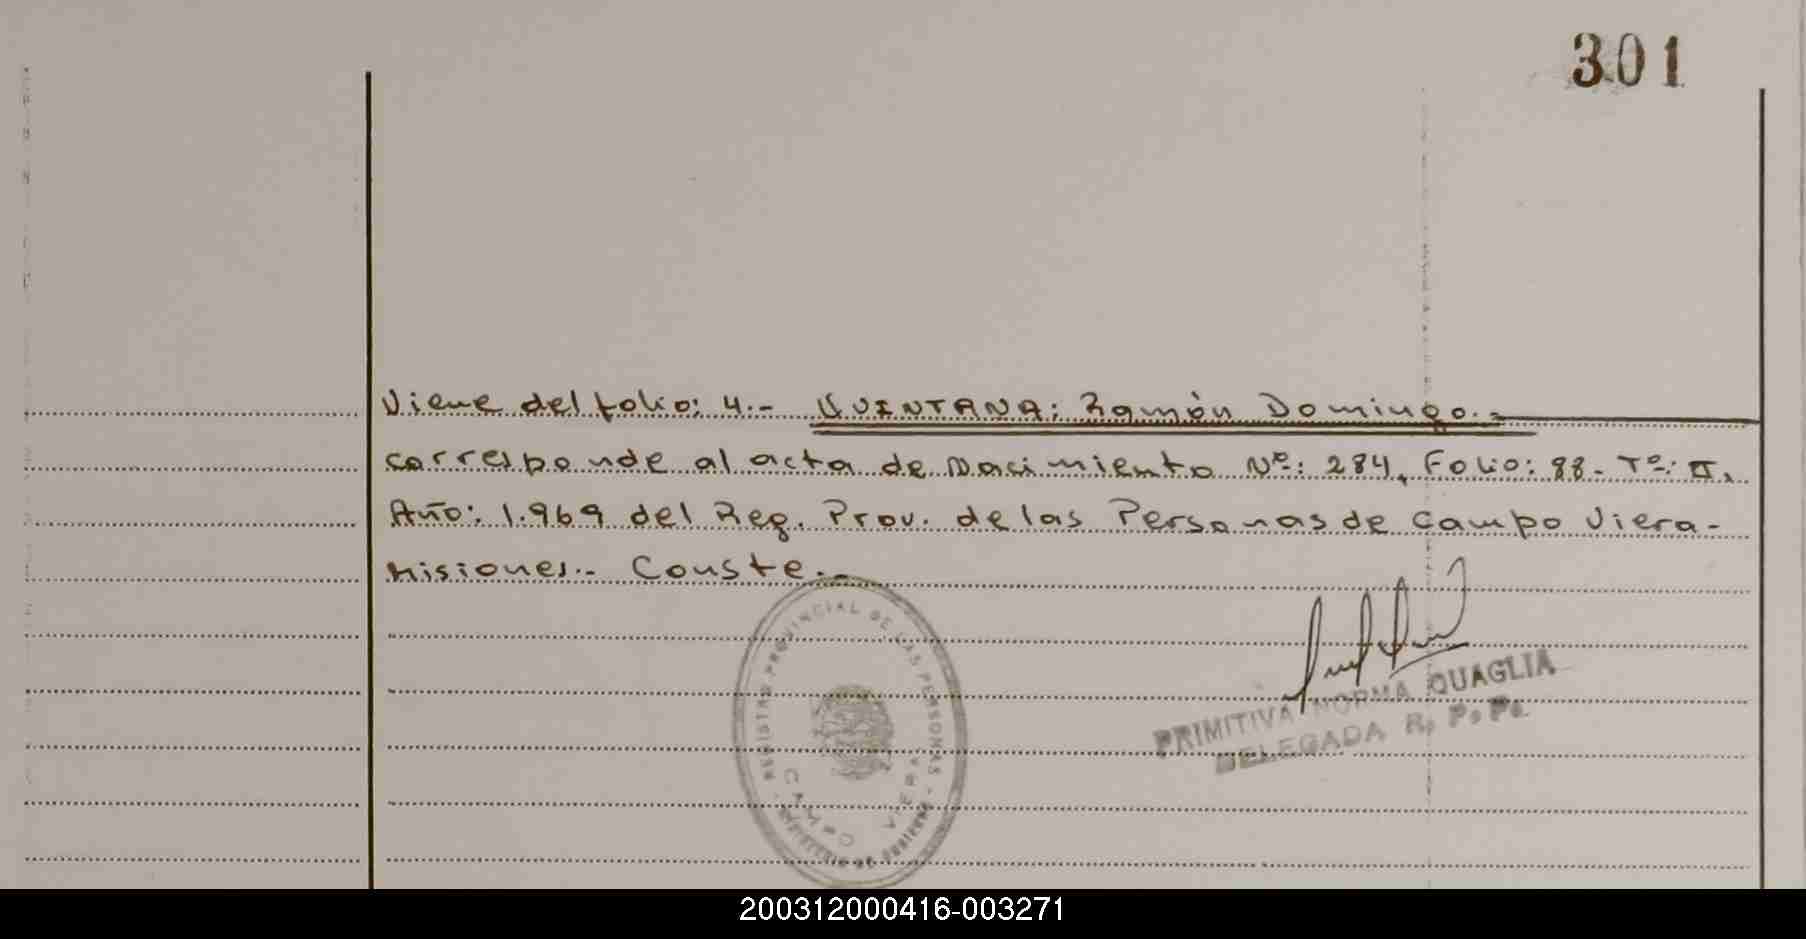 301
Viene del folio: 4.- QUINTANA: Ramón Domingo.-
corresponde al acta de Nacimiento Nº: 284, Folio: 88- Tº: II.
Año: 1.969 del Reg. Prov. de las Personas de Campo Viera-
Misiones.- Conste.-
REGISTRO PROVINCIAL DE LAS PERSONAS -
CAMPO VIERA
PRIMITIVA NORMA QUAGLIA
DELEGADA R. P. P.
200312000416-003271